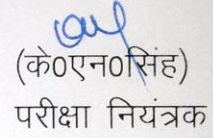 (के0एन0सिंह)
परीक्षा नियंत्रक